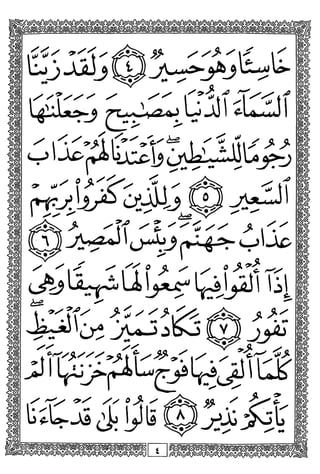 خَاسِئًا وَهُوَ حَسِيرٌ ٤ وَلَقَدْ زَيَّنَّا
السَّمَاءَ الدُّنْيَا بِمَصَٰبِيحَ وَجَعَلْنَٰهَا
رُجُومًا لِّلشَّيَٰطِينِ ۖ وَأَعْتَدْنَا لَهُمْ عَذَابَ
السَّعِيرِ ٥ وَلِلَّذِينَ كَفَرُوا۟ بِرَبِّهِمْ
عَذَابُ جَهَنَّمَ ۖ وَبِئْسَ الْمَصِيرُ ٦
إِذَا أُلْقُوا۟ فِيهَا سَمِعُوا۟ لَهَا شَهِيقًا وَهِيَ
تَفُورُ ٧ تَكَادُ تَمَيَّزُ مِنَ الْغَيْظِ ۖ
كُلَّمَا أُلْقِيَ فِيهَا فَوْجٌ سَأَلَهُمْ خَزَنَتُهَا أَلَمْ
يَأْتِكُمْ نَذِيرٌ ٨ قَالُوا۟ بَلَىٰ قَدْ جَاءَنَا
٤